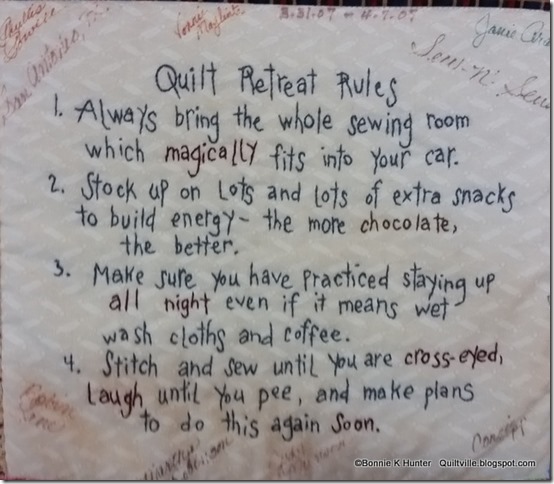 Phyllis
San Antonio,
3-31-07 - 4-7-07
Janie
Sew-n-Sew
Quilt Retreat Rules
1. Always bring the whole sewing room
which magically fits into your car.
2. Stock up on Lots and lots of extra snacks
to build energy- the more chocolate,
the better.
3. Make sure you have practiced staying up
all night even if it means wet
wash cloths and coffee.
4. Stitch and sew until you are cross-eyed,
Laugh until you pee, and make plans
to do this again soon.
©Bonnie K Hunter Quiltville.blogspot.com